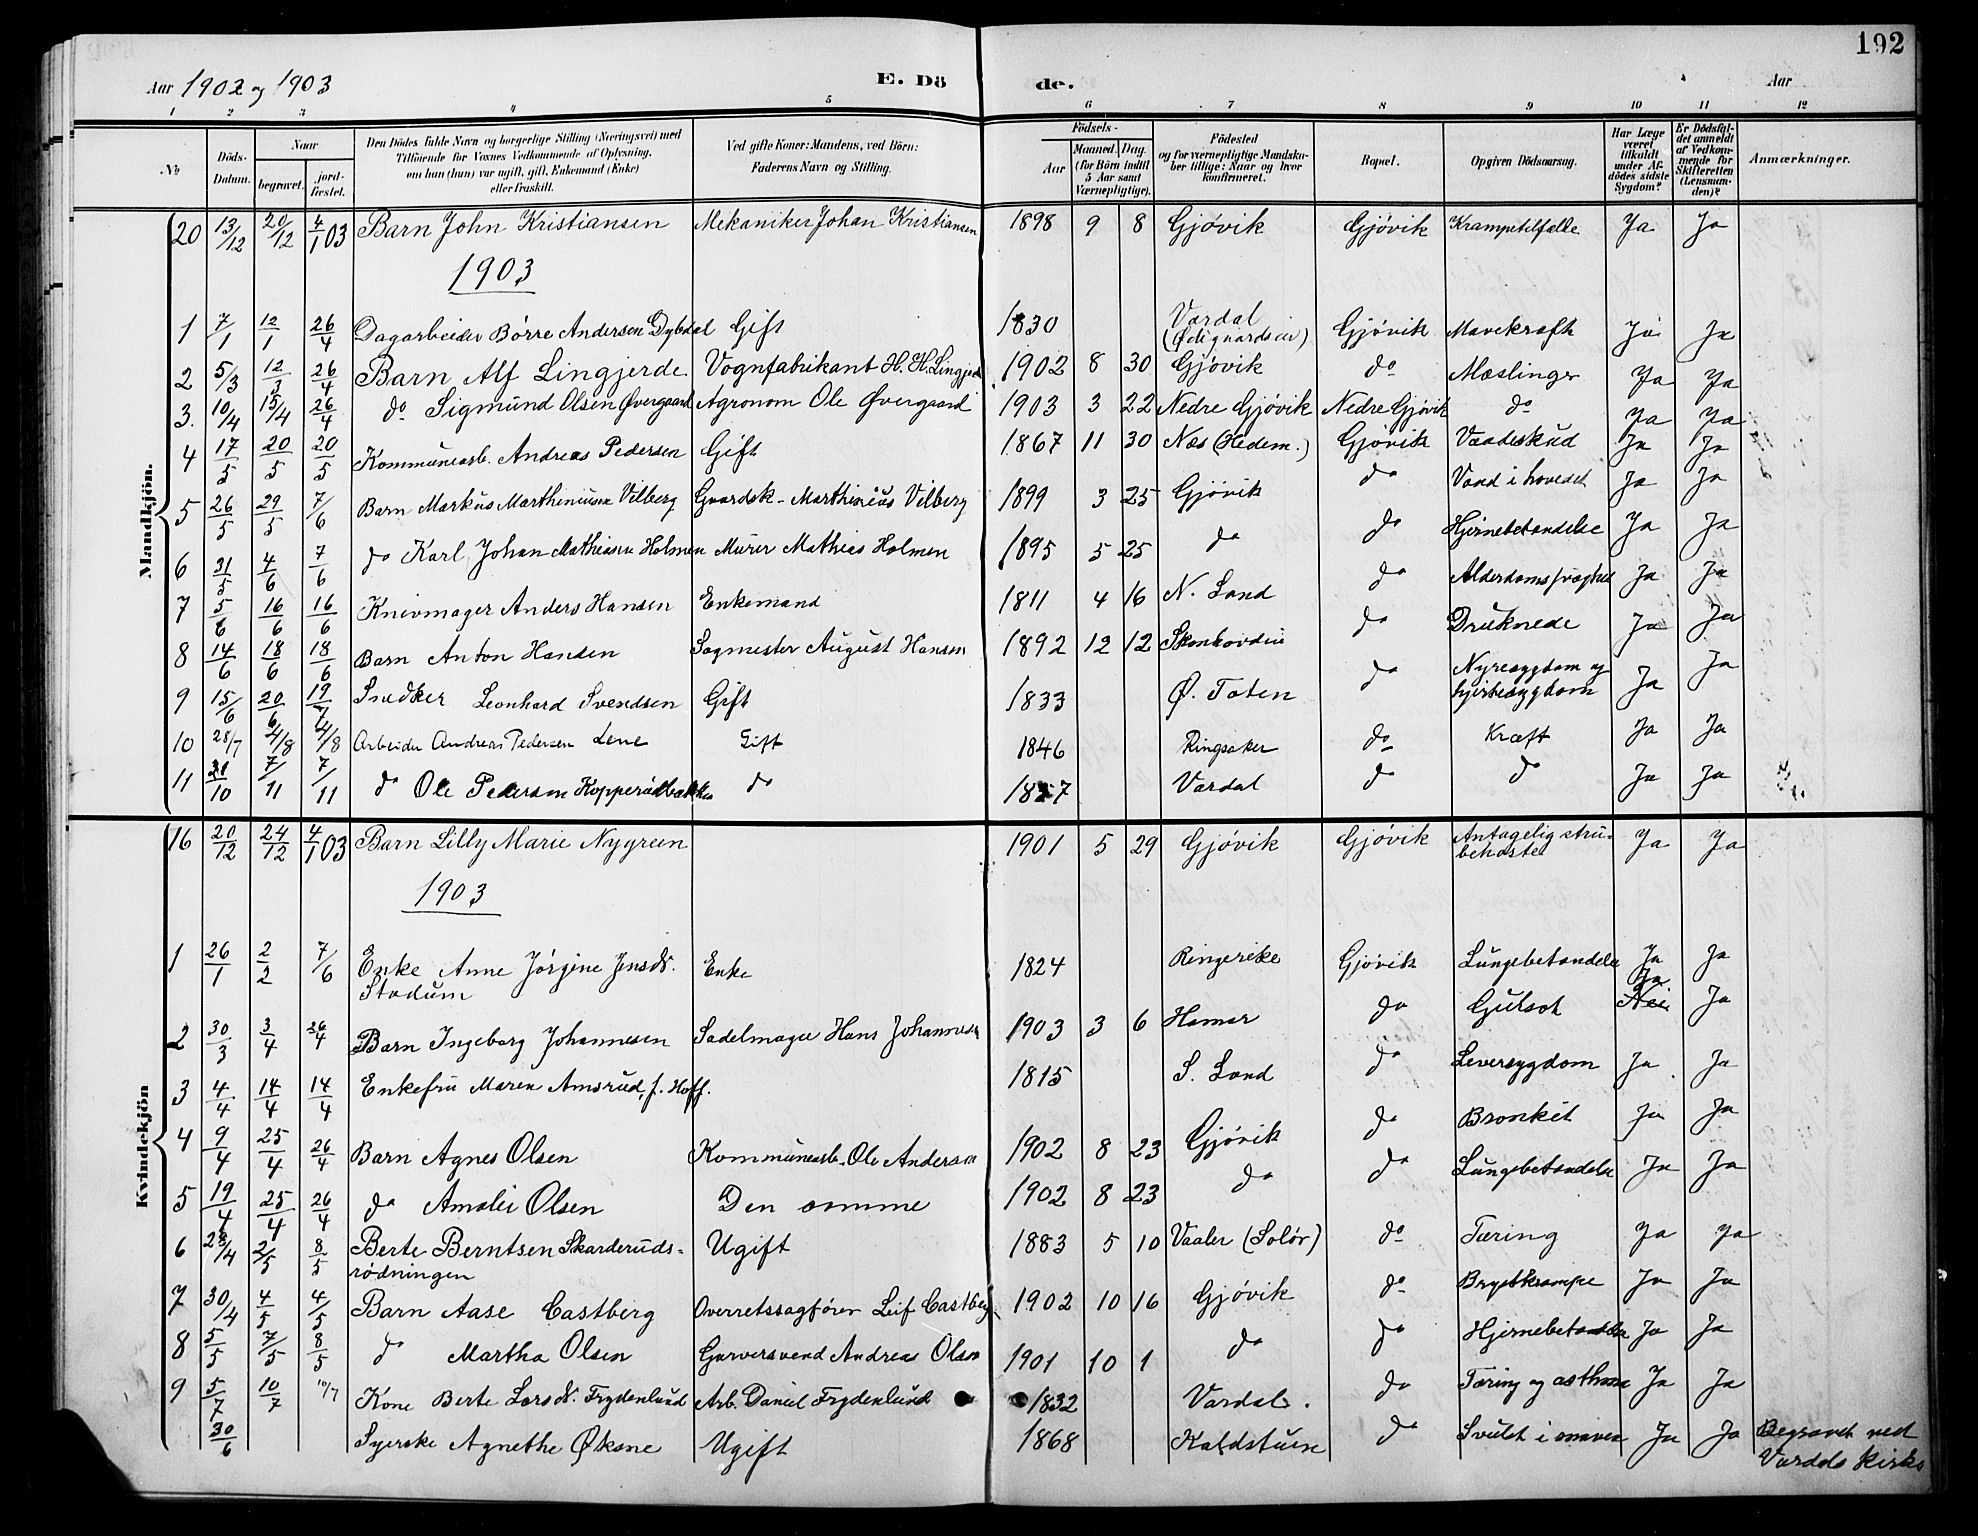 192
Aar 1902 og 1903 E. Dö de. Aar
1 2 3 4 5 6 7 8 9 10 11 12
No Döds-Datum. Naar begravet. jord-fæstet. Den Dödes fulde Navn og borgerlige Stilling (Næringsvei) med Tilföiende for Voxnes Vedkommende af Oplysning, om han (hun) var ugift, gift, Enkemand (Enke) eller fraskilt. Ved gifte Koner: Mandens, ved Börn: Faderens Navn og Stilling. Födsels- Aar Maaned. Dag. (for Börn indtil 5 Aar samt Værnepligtige). Födested og for værnepligtige Mandskaber tillige: Naar og hvor konfirmeret. Bopæl. Opgiven Dödsaarsag. Har Læge været tilkaldt under Afdödes sidste Sygdom? Er Dödsfaldet anmeldt af Vedkommende for Skifteretten (Lensmanden)? Anmærkninger.
Mandkjön.
20 13/12 20/12 4/1 03 Barn John Kristiansen Mekaniker Johan Kristiansen 1898 9 8 Gjövik Gjövik Krampetilfælle Ja Ja
1903
1 7/1 12/1 26/4 Dagarbeider Börre Andersen Dybdal Gift 1830 Vardal Gjövik Mavekræft Ja Ja
2 5/3 12/3 26/4 Barn Alf Lingjerde Vognfabrikant H. H. Lingjerde 1902 8 30 Gjövik do Mæslinger Ja Ja
3. 10/4 15/4 26/4 do Sigmund Olsen Övergaard Agronom Ole Övergaard 1903 3 22 Nedre Gjövik Nedre Gjövik do Ja Ja
4 17/5 20/5 20/5 Kommunearb. Andreas Pedersen Gift 1867 11 30 Næs (Hedem.) Gjövik Vaadeskud Ja Ja
5 26/5 29/5 7/6 Barn Markus Marthiniusen Vilberg Gaardsk. Marthinius Vilberg 1899 3 25 Gjövik do Vand i hovedet Ja Ja
6 31/5 4/6 7/6 do Karl Johan Mathiasen Holmen Murer Mathias Holmen 1895 5 25 do do Hjernebetændelse Ja Ja
7 5/6 16/6 16/6 Knivmager Anders Hansen Enkemand 1811 4 16 N. Land do Alderdomssvaghed Ja Ja
8 14/6 18/6 18/6 Barn Anton Hansen Sagmester August Hansen 1892 12 12 do Druknede Ja Ja
9 15/6 20/6 19/7 Snedker Leonhard Svendsen Gift 1833 Ø. Toten do Nyresygdom og hjertesygdom Ja Ja
10 28/7 4/8 4/8 Arbeider Andreas Pedersen Lene Gift 1846 Ringsaker do Kræft Ja Ja
11 31/10 7/11 7/11 do Ole Pedersen Kopperudbakken do Vardal do do Ja Ja
Kvindekjön
16 20/12 24/12 4/1 03 Barn Lilly Marie Nygreen 1901 5 29 Gjövik Gjövik Antagelig strubehoste Ja Ja
1903
1 26/1 2/2 7/6 Enke Anne Jörgine Jensdr. Stadum Enke 1824 Ringerike Gjövik Lungebetændelse Ja Ja
2 30/3 3/4 26/4 Barn Ingeborg Johannesen Sadelmager Hans Johannesen 1903 3 6 Hamar do Gulsot Ja Nei Ja
3 4/4 14/4 14/4 Enkefru Maren Amsrud, f. Hoff. 1815 S. Land do Leversygdom Ja Ja
4 9/4 25/4 26/4 Barn Agnes Olsen Kommunearb. Ole Andersen 1902 8 23 Gjövik do Bronkit Ja Ja
5 19/4 25/4 26/4 do Amalie Olsen Den samme 1902 8 23 do do Lungebetændelse Ja Ja
6 2/5 8/5 Berte Berntsen Skarderudsrödningen Ugift 1883 5 10 Vaaler (Solör) do Tæring Ja Ja
7 30/4 4/5 4/5 Barn Aase Castberg Overretssagförer Leif Castberg 1902 10 16 Gjövik do Brystkrampe Ja Ja
8 5/5 7/5 8/5 do Martha Olsen Garversvend Andreas Olsen 1901 10 1 do do Hjernebetændelse Ja Ja
9 5/7 10/7 10/7 Kone Berte Larsdr. Frydenlund Arb. Daniel Frydenlund 1832 Vardal. do Tæring og asthma Ja Ja
30/6 Syerske Agnethe Øksne Ugift 1868 Kaldstuen do Svulst i maven Ja Ja Begravet ved Vardals kirke